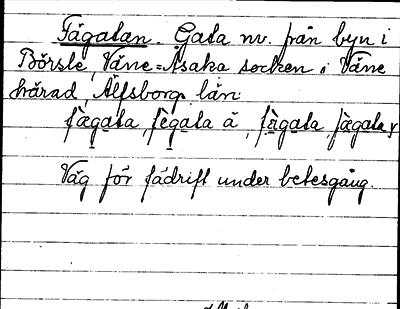 Fägatan. Gata nv. från byn i
Börsle, Väne=Åsaka socken i Väne
härad, Älfsborgs län:
fägata, fégata å, fàgata, fägatar
Väg för fädrift under betesgång.